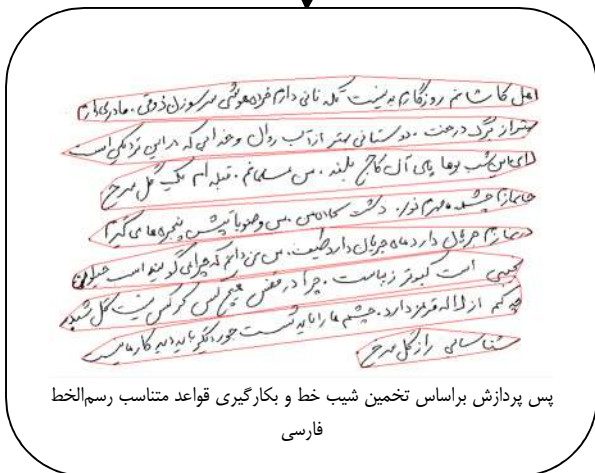 اهل کاشانم روزگارم بد نیست تکه نانی دارم خرده هوشی سر سوزن ذوقی . مادری دارم
بهتر از برگ درخت . دوستانی بهتر از آب روان و خدایی که در این نزدیکی است
لای این شب بوها پای آن کاج بلند . من مسلمانم . قبله ام یک گل سرخ
جانمازم چشمه مهرم نور . دشت سجاده من . من وضو با تپش پنجره ها می گیرم
در نمازم جریان دارد ماه جریان دارد طیف . من نمی دانم که چرا می گویند اسب حیوان
نجیبی است کبوتر زیباست . چرا در قفس هیچ کسی کرکس نیست گل شبدر
چه کم از لاله قرمز دارد . چشم ها را باید شست جور دیگر باید دید کار ما نیست
شناسایی راز گل سرخ
پس پردازش براساس تخمین شیب خط و بکارگیری قواعد متناسب رسم‌الخط
فارسی